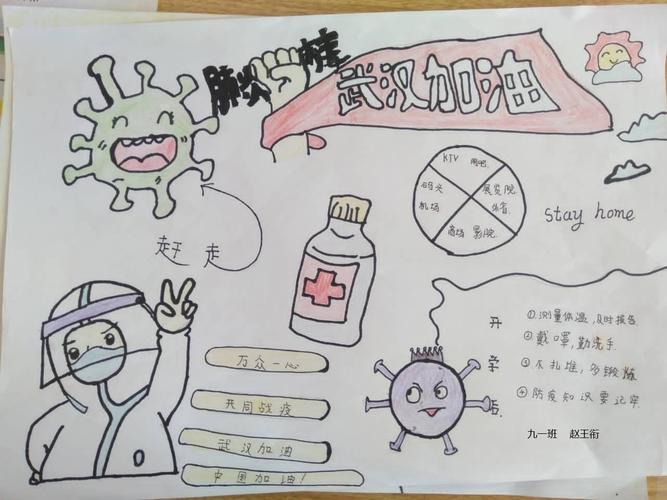 肺炎病毒
武汉加油
KTV 网吧
码头
机场
展览院
体育
商场 影院
stay home
赶走
万众一心
共同战疫
武汉加油
中国加油!
开学后
①测量体温,及时报告
②戴口罩,勤洗手.
③不扎堆,多锻炼
④防疫知识要记牢.
九一班 赵王衍